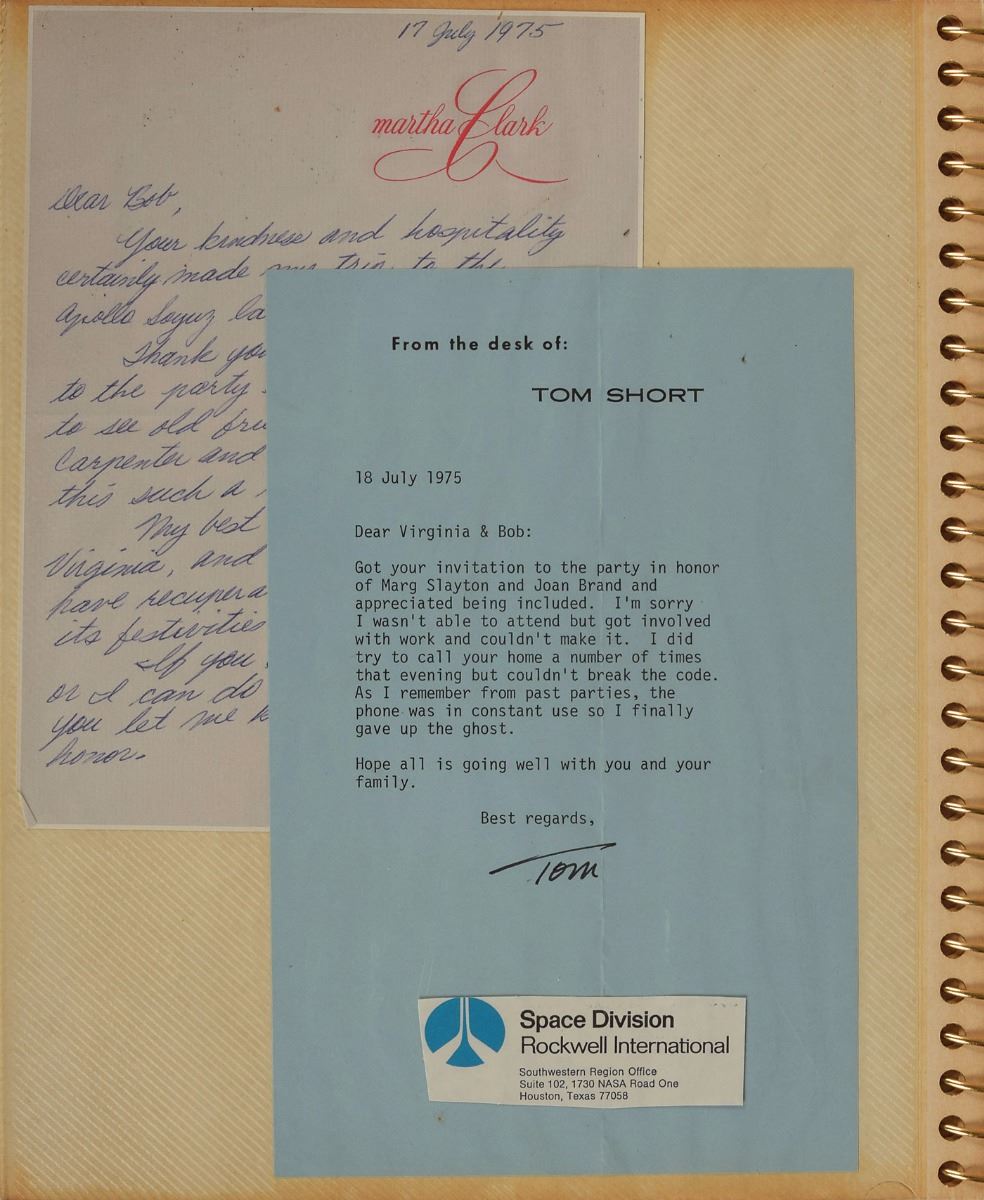 17 July 1975
martha Clark
Dear Bob,
Your kindness and hospitality
certainly made my trip to the
Apollo Soyuz la
Thank you
to the party
to see old frie
Carpenter and
this such a
My best
Virginia, and
have recupera
its festivities
If you
or I can do
you let me k
honor.
From the desk of:
TOM SHORT
18 July 1975
Dear Virginia & Bob:
Got your invitation to the party in honor
of Marg Slayton and Joan Brand and
appreciated being included.  I'm sorry
I wasn't able to attend but got involved
with work and couldn't make it.  I did
try to call your home a number of times
that evening but couldn't break the code.
As I remember from past parties, the
phone was in constant use so I finally
gave up the ghost.
Hope all is going well with you and your
family.
Best regards,
Tom
Space Division
Rockwell International
Southwestern Region Office
Suite 102, 1730 NASA Road One
Houston, Texas 77058